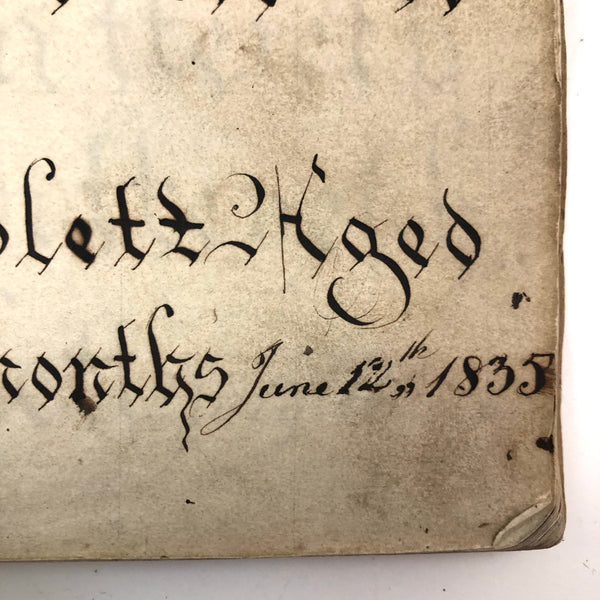 lett Aged
months June 12th 1835